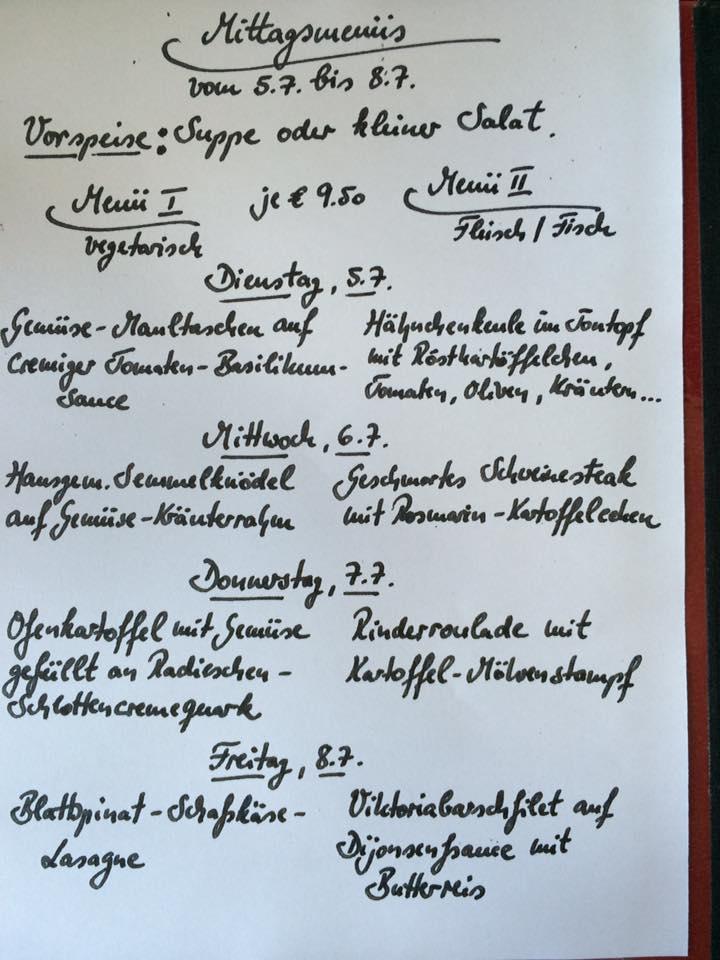 Mittagsmenüs
vom 5.7. bis 8.7.
Vorspeise: Suppe oder kleiner Salat.
Menü I je € 9.50 Menü II
vegetarisch Fleisch / Fisch
Dienstag, 5.7.
Gemüse-Maultaschen auf
cremiger Tomaten-Basilikum-
Sauce
Hähnchenkeule im Tontopf
mit Röstkartöffelchen,
Tomaten, Oliven, Kräutern...
Mittwoch, 6.7.
Hausgem. Semmelknödel
auf Gemüse-Kräuterrahm
Geschmortes Schweinesteak
mit Rosmarin-Kartoffelecken
Donnerstag, 7.7.
Ofenkartoffel mit Gemüse
gefüllt an Radieschen-
Schlottencremequark
Rinderroulade mit
Kartoffel-Möhrenstampf
Freitag, 8.7.
Blattspinat-Schafskäse-
Lasagne
Viktoriabarschfilet auf
Dijonsenfsauce mit
Butterreis